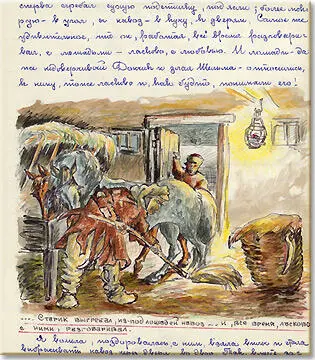 сперва сгребал сухую подстилку под ясли; более мок-
рую - в угол, а навоз - в кучу, к дверям. Самое же
удивительное, что он, работая, всё время разговари-
вал, с лошадьми - ласково, с любовью. И лошади - да-
же недоверчивый Дончик и злая Шельма - относились,
к нему, тоже ласково и, как будто, понимали его!
... Старик выгребал, из-под лошадей навоз... и, все время, ласково
с ними, разговаривал.
Я вошла, поздоровалась, с ним, взяла вилы и стала
выбрасывать навоз через двери во двор.